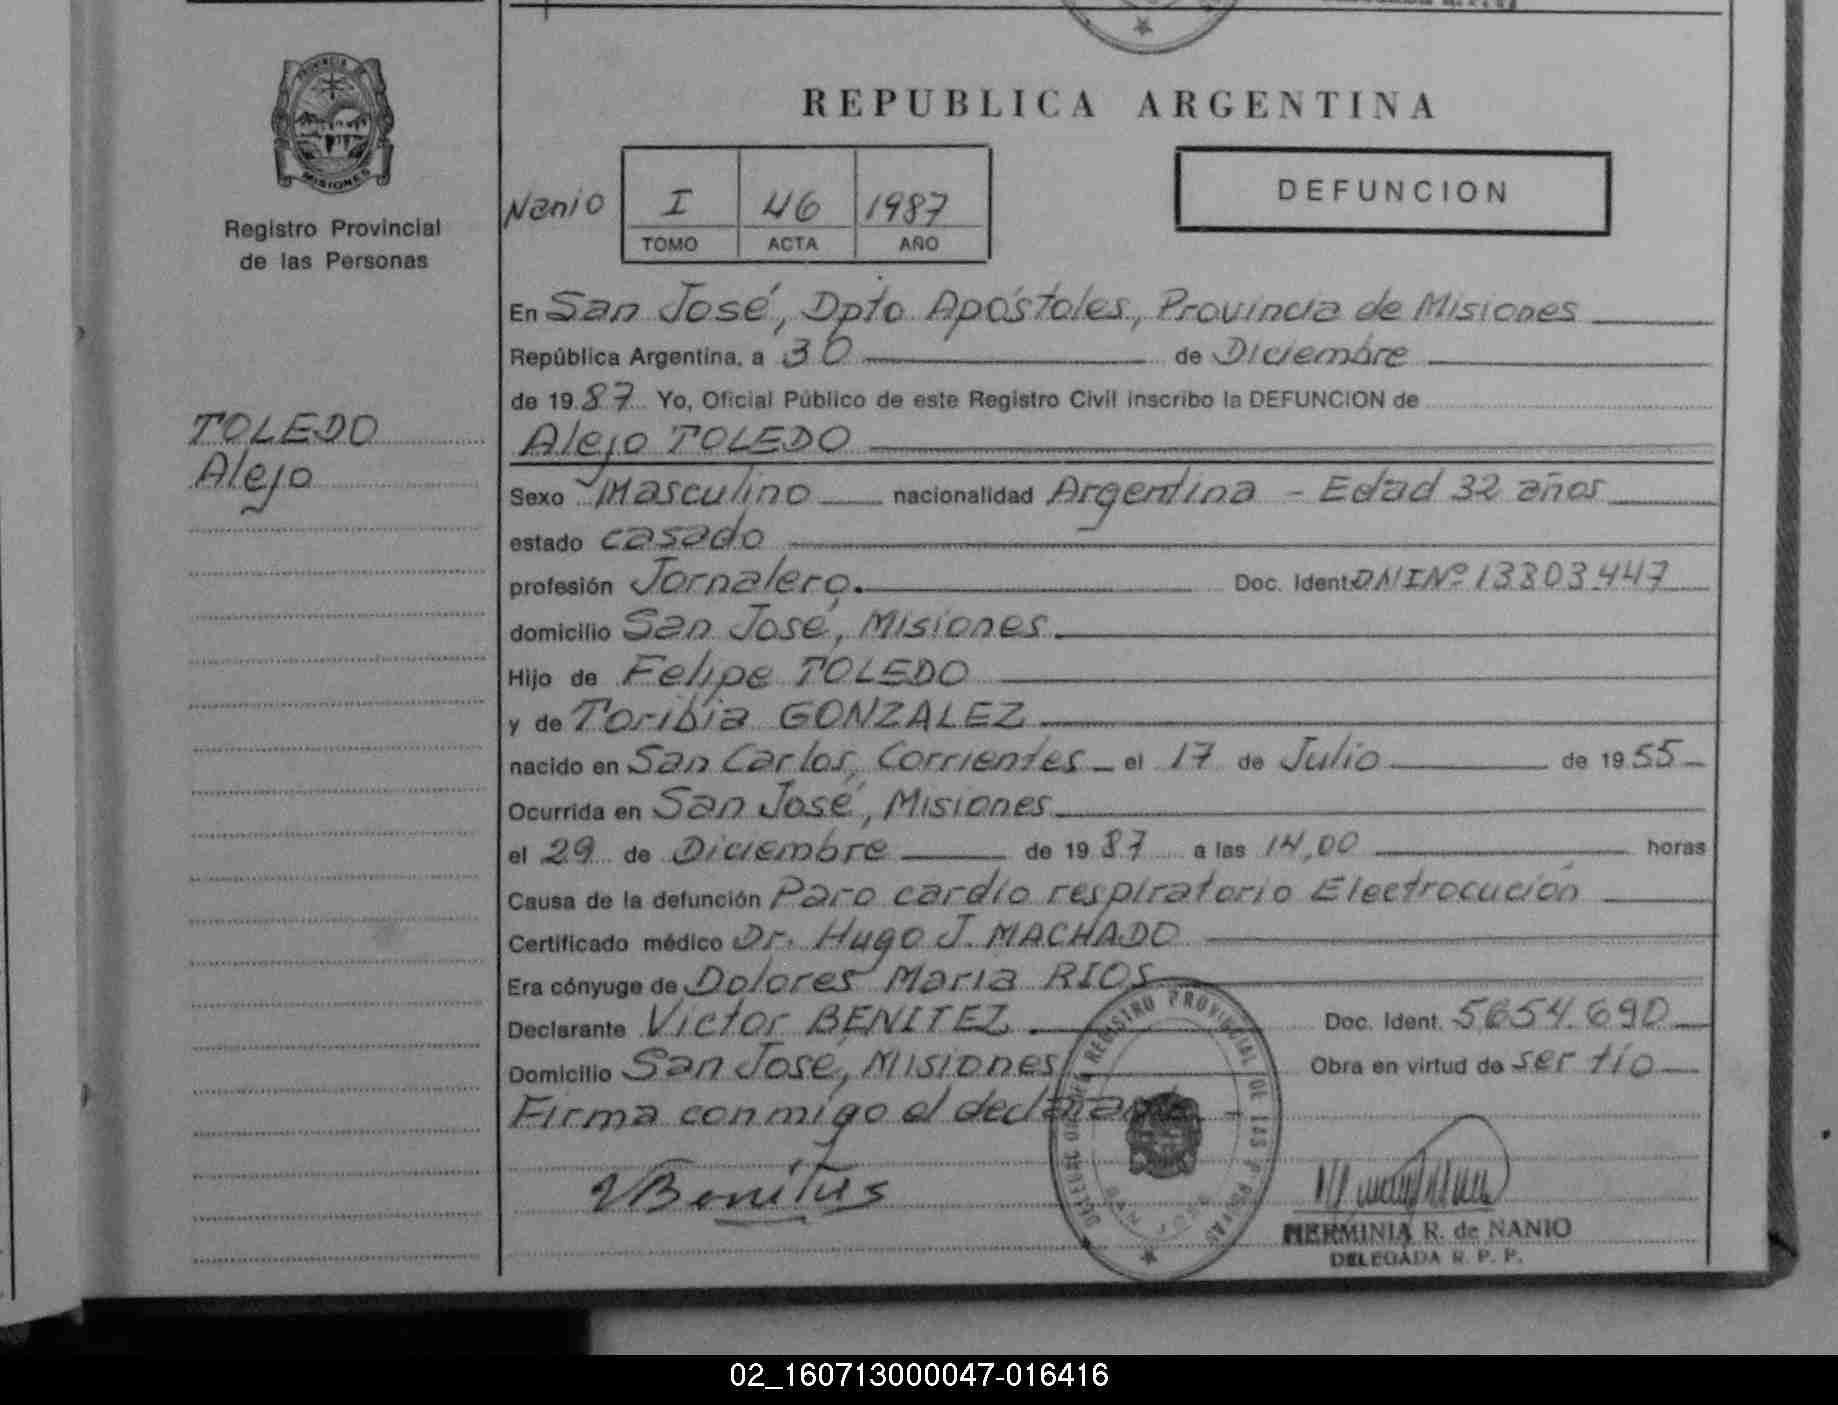 PROVINCIA DE
MISIONES
Registro Provincial
de las Personas
TOLEDO
Alejo
REPUBLICA ARGENTINA
Nanio
I 46 1987
TOMO ACTA AÑO
DEFUNCION
En San José, Dpto Apóstoles, Provincia de Misiones
República Argentina, a 30 de Diciembre
de 1987 Yo, Oficial Público de este Registro Civil inscribo la DEFUNCION de
Alejo TOLEDO
Sexo Masculino nacionalidad Argentina - Edad 32 años
estado casado
profesión Jornalero. Doc. Ident. DNI Nº 13.803.447
domicilio San José, Misiones.
Hijo de Felipe TOLEDO
y de Toribia GONZALEZ
nacido en San Carlos, Corrientes el 17 de Julio de 1955
Ocurrida en San José, Misiones
el 29 de Diciembre de 1987 a las 14,00 horas
Causa de la defunción Paro cardio respiratorio Electrocución
Certificado médico Dr. Hugo J. MACHADO
Era cónyuge de Dolores Maria RIOS
Declarante Victor BENITEZ Doc. Ident. 5654.690
Domicilio San José, Misiones Obra en virtud de ser tío
Firma conmigo el declarante
REGISTRO PROVINCIAL DE LAS PERSONAS
HERMINIA R. de NANIO
DELEGADA R. P. P.
02_160713000047-016416